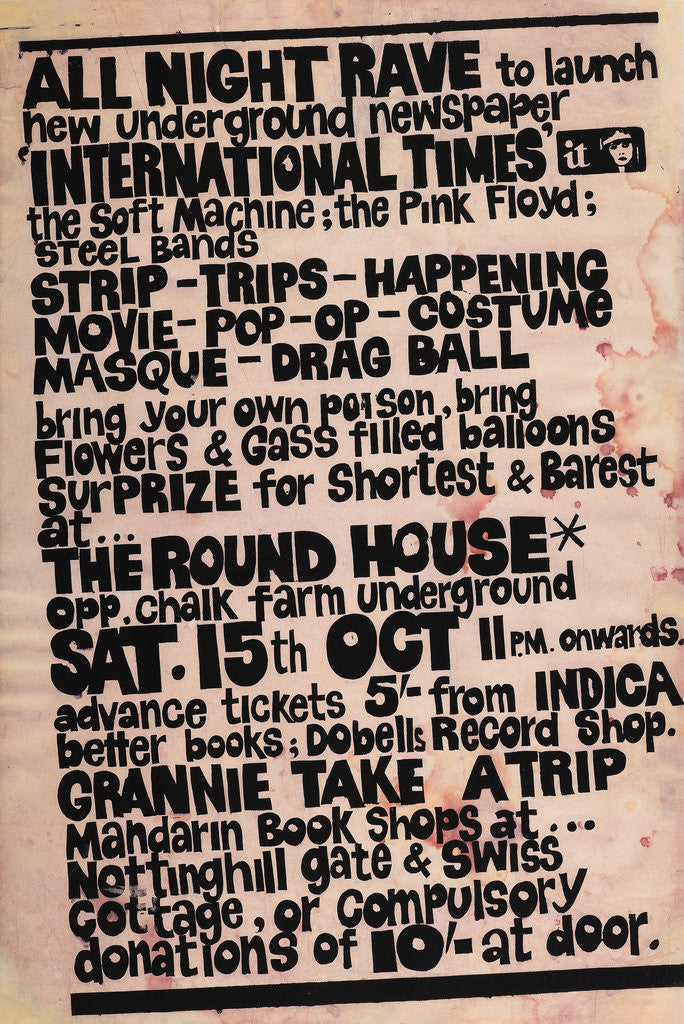 ALL NIGHT RAVE to launch
new underground newspaper
'INTERNATIONAL TIMES' it
the Soft Machine; the Pink Floyd;
STEEL BANDS
STRIP-TRIPS-HAPPENING
MOVIE-POP-OP-COSTUME
MASQUE-DRAG BALL
bring your own poison, bring
Flowers & Gass filled balloons
SurPRIZE for Shortest & Barest
at...
THE ROUND HOUSE*
opp. chalk farm underground
SAT. 15th OCT 11 P.M. onwards.
advance tickets 5/- from INDICA
better books; Dobells Record Shop.
GRANNIE TAKE A TRIP
Mandarin Book Shops at...
Nottinghill gate & SWISS
cottage, or compulsory
donations of 10/- at door.